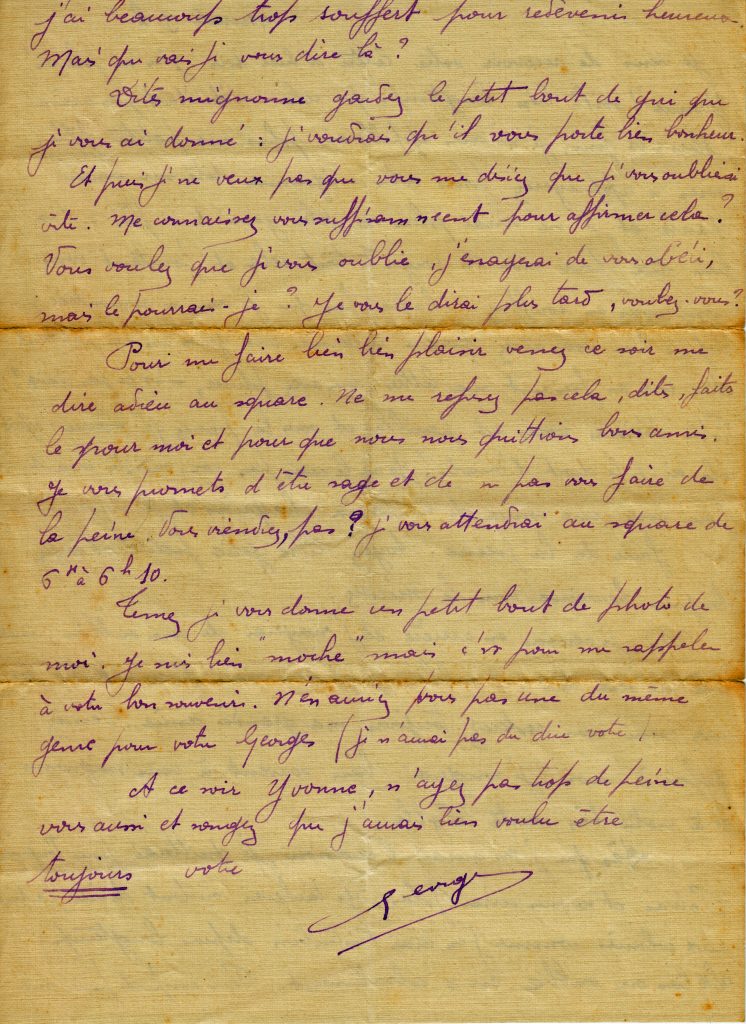 j'ai beaucoup trop souffert pour redevenir heureux.
Mais que vais je vous dire là ?
Dites mignonne gardez le petit bout de gui que
je vous ai donné : je voudrais qu'il vous porte bien bonheur.
Et puis je ne veux pas que vous me disiez que je vous oublierai
vite. Me connaissez vous suffisamment pour affirmer cela ?
Vous voulez que je vous oublie, j'essayerai de vous obéir,
mais le pourrais-je ? Je vous le dirai plus tard, voulez-vous ?
Pour me faire bien bien plaisir venez ce soir me
dire adieu au square. Ne me refusez pas cela, dites, faites
le pour moi et pour que nous nous quittions bons amis.
Je vous promets d'être sage et de n pas vous faire de
la peine. Vous viendrez, pas ? je vous attendrai au square de
6h à 6h10.
Tenez je vous donne un petit bout de photo de
moi. Je suis bien "moche" mais c'est pour me rappeler
à votre bon souvenir. N'en auriez vous pas une du même
genre pour votre Georges (je n'aurai pas du dire votre).
A ce soir Yvonne, n'ayez pas trop de peine
vous aussi et songez que j'aurais bien voulu être
toujours votre
George